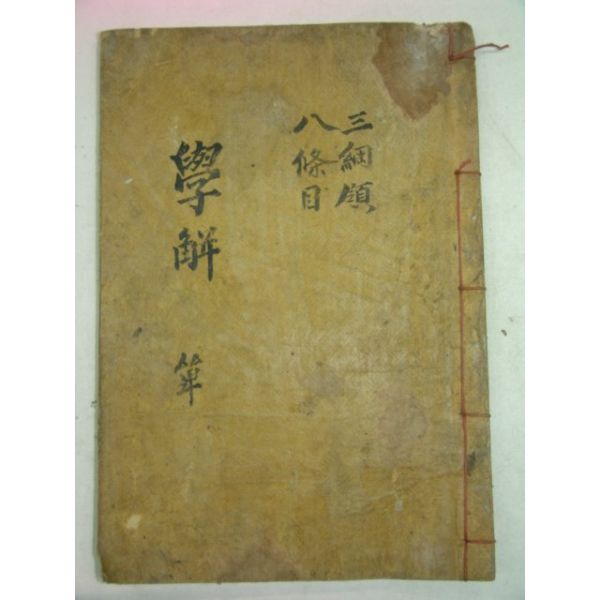 三綱領
八條目
學解 單